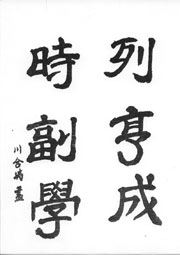 列亨成
時副學
川合